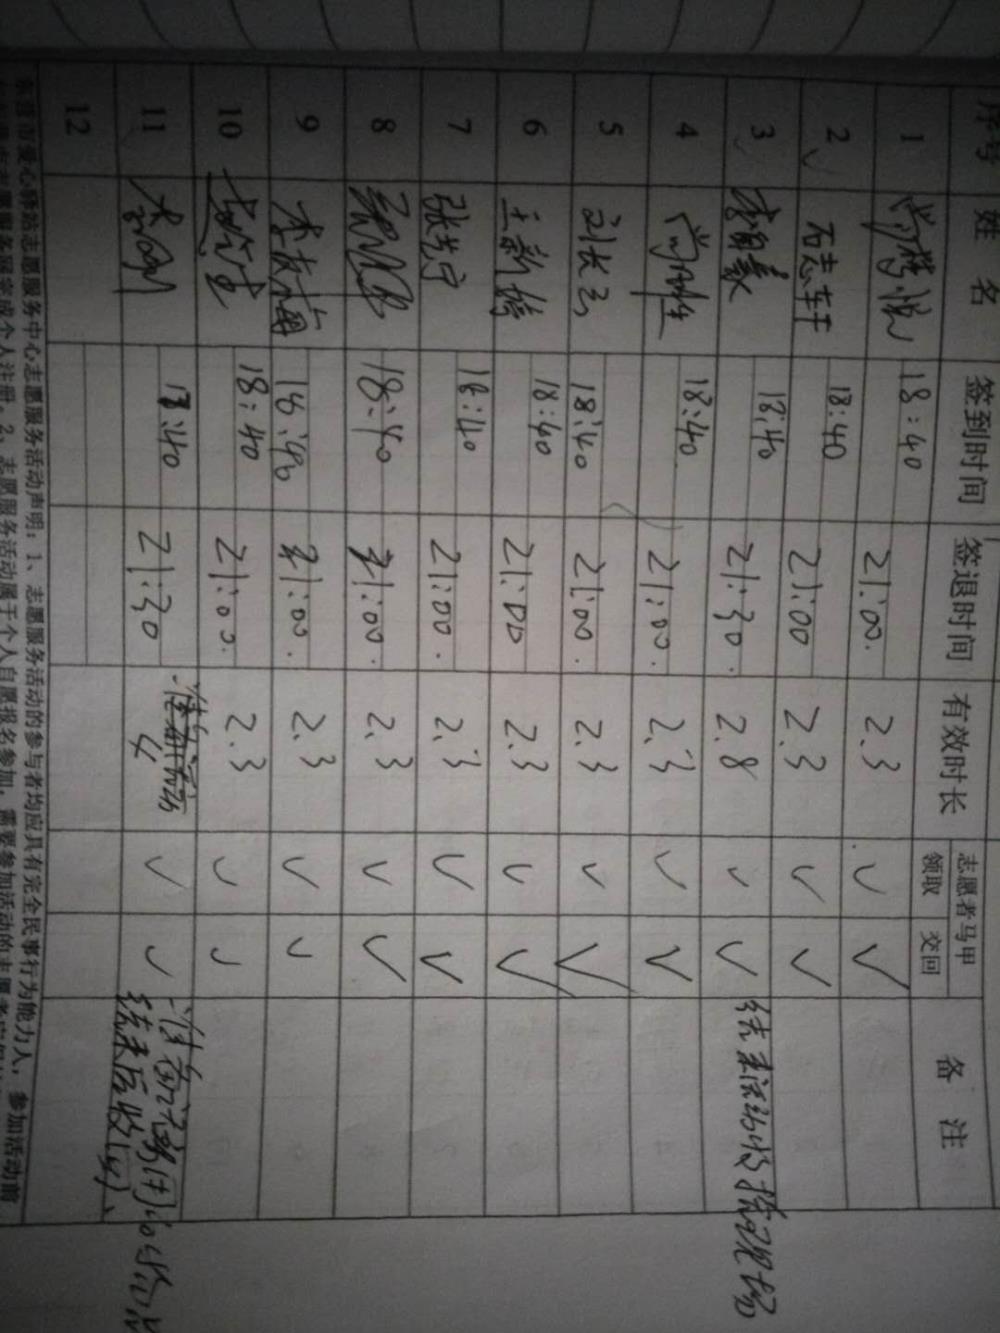 序号 姓名 签到时间 签退时间 有效时长 志愿者马甲 领取 交回 备注
1 尚腾悦 18:40 21:00. 2.3 ✓ ✓
2 石志轩 18:40 21:00 2.3 ✓ ✓
3 18:40 21:30. 2.8 ✓ ✓ 结束活动收拾现场
4 尚胜 18:40 21:00. 2.3 ✓ ✓
5 刘长云 18:40 21:00. 2.3 ✓ ✓
6 王新婷 18:40 21:00 2.3 ✓ ✓
7 张芳宁 18:40 21:00. 2.3 ✓ ✓
8 18:40 21:00. 2.3 ✓ ✓
9 李政 18:40 21:00. 2.3 ✓ ✓
10 18:40 21:00. 2.3 ✓ ✓
11 18:40 21:30 准备活动 4 ✓ ✓ 准备 结束后收
12
东营市爱心驿站志愿服务中心志愿服务活动声明:1、志愿服务活动的参与者均应具有完全民事行为能力人,参加活动前
志愿服务网完成个人注册。2、志愿服务活动属于个人自愿报名参加,需要参加活动的志愿者